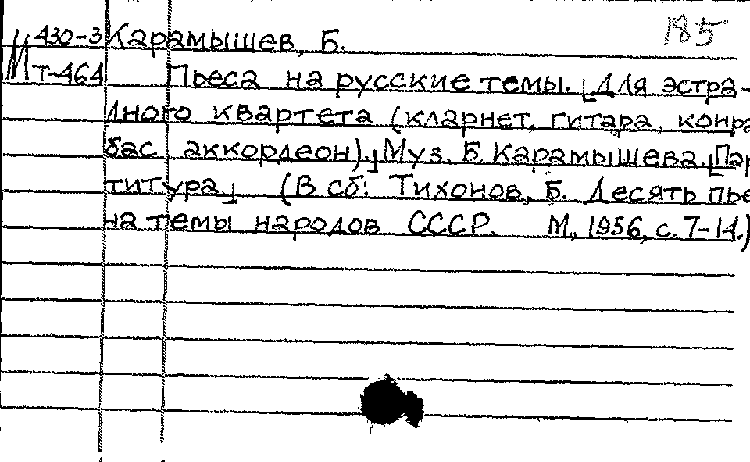 185
М 430-3 Карамышев, Б.
Т-464 Пьеса на русские темы. [Для эстра-
дного квартета (кларнет, гитара, конра
бас, аккордеон).] Муз. Б. Карамышева. [Пар
титура] (В сб.: Тихонов, Б. Десять пье
на темы народов СССР. М., 1956, с. 7-14.)